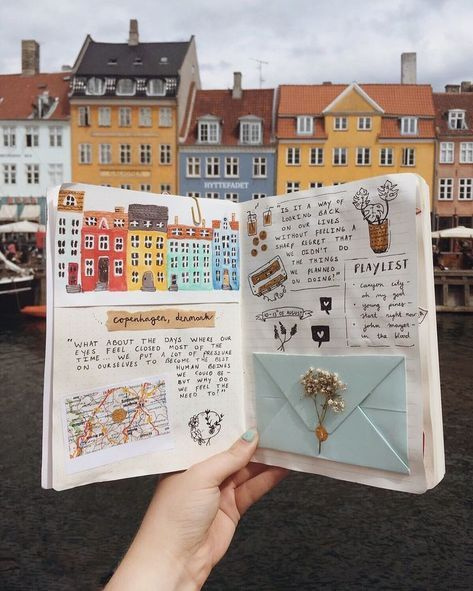 HYTTEFADET
copenhagen, denmark
"WHAT ABOUT THE DAYS WHERE OUR
EYES FEEL CLOSED MOST OF THE
TIME... WE PUT A LOT OF PRESSURE
ON OURSELVES TO BECOME THE BEST
HUMAN BEINGS
WE COULD BE-
BUT WHY DO
WE FEEL THE
NEED TO?"
"IS IT A WAY OF
LOOKING BACK
ON OUR LIVES
WITHOUT FEELING A
SHARP REGRET THAT
WE DIDN'T DO
THE THINGS
WE PLANNED
ON DOING?"
10-13TH OF AUGUST
PLAYLIST
- canyon city -
oh my god
- young pines -
start right now
- john mayer -
in the blood